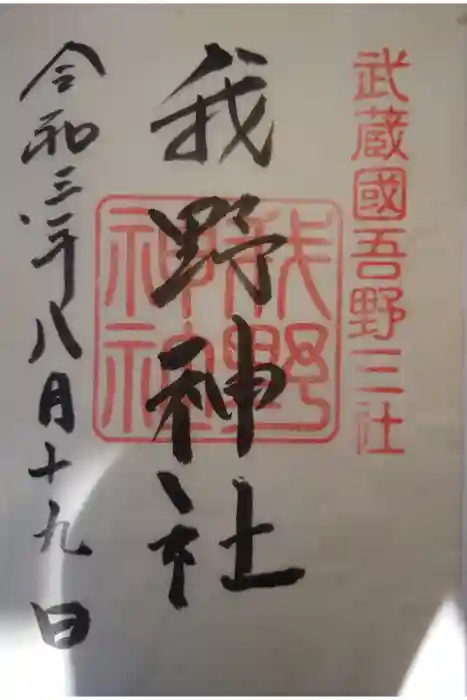 武蔵國吾野三社
我野神社
我野神社
令和三年八月十九日